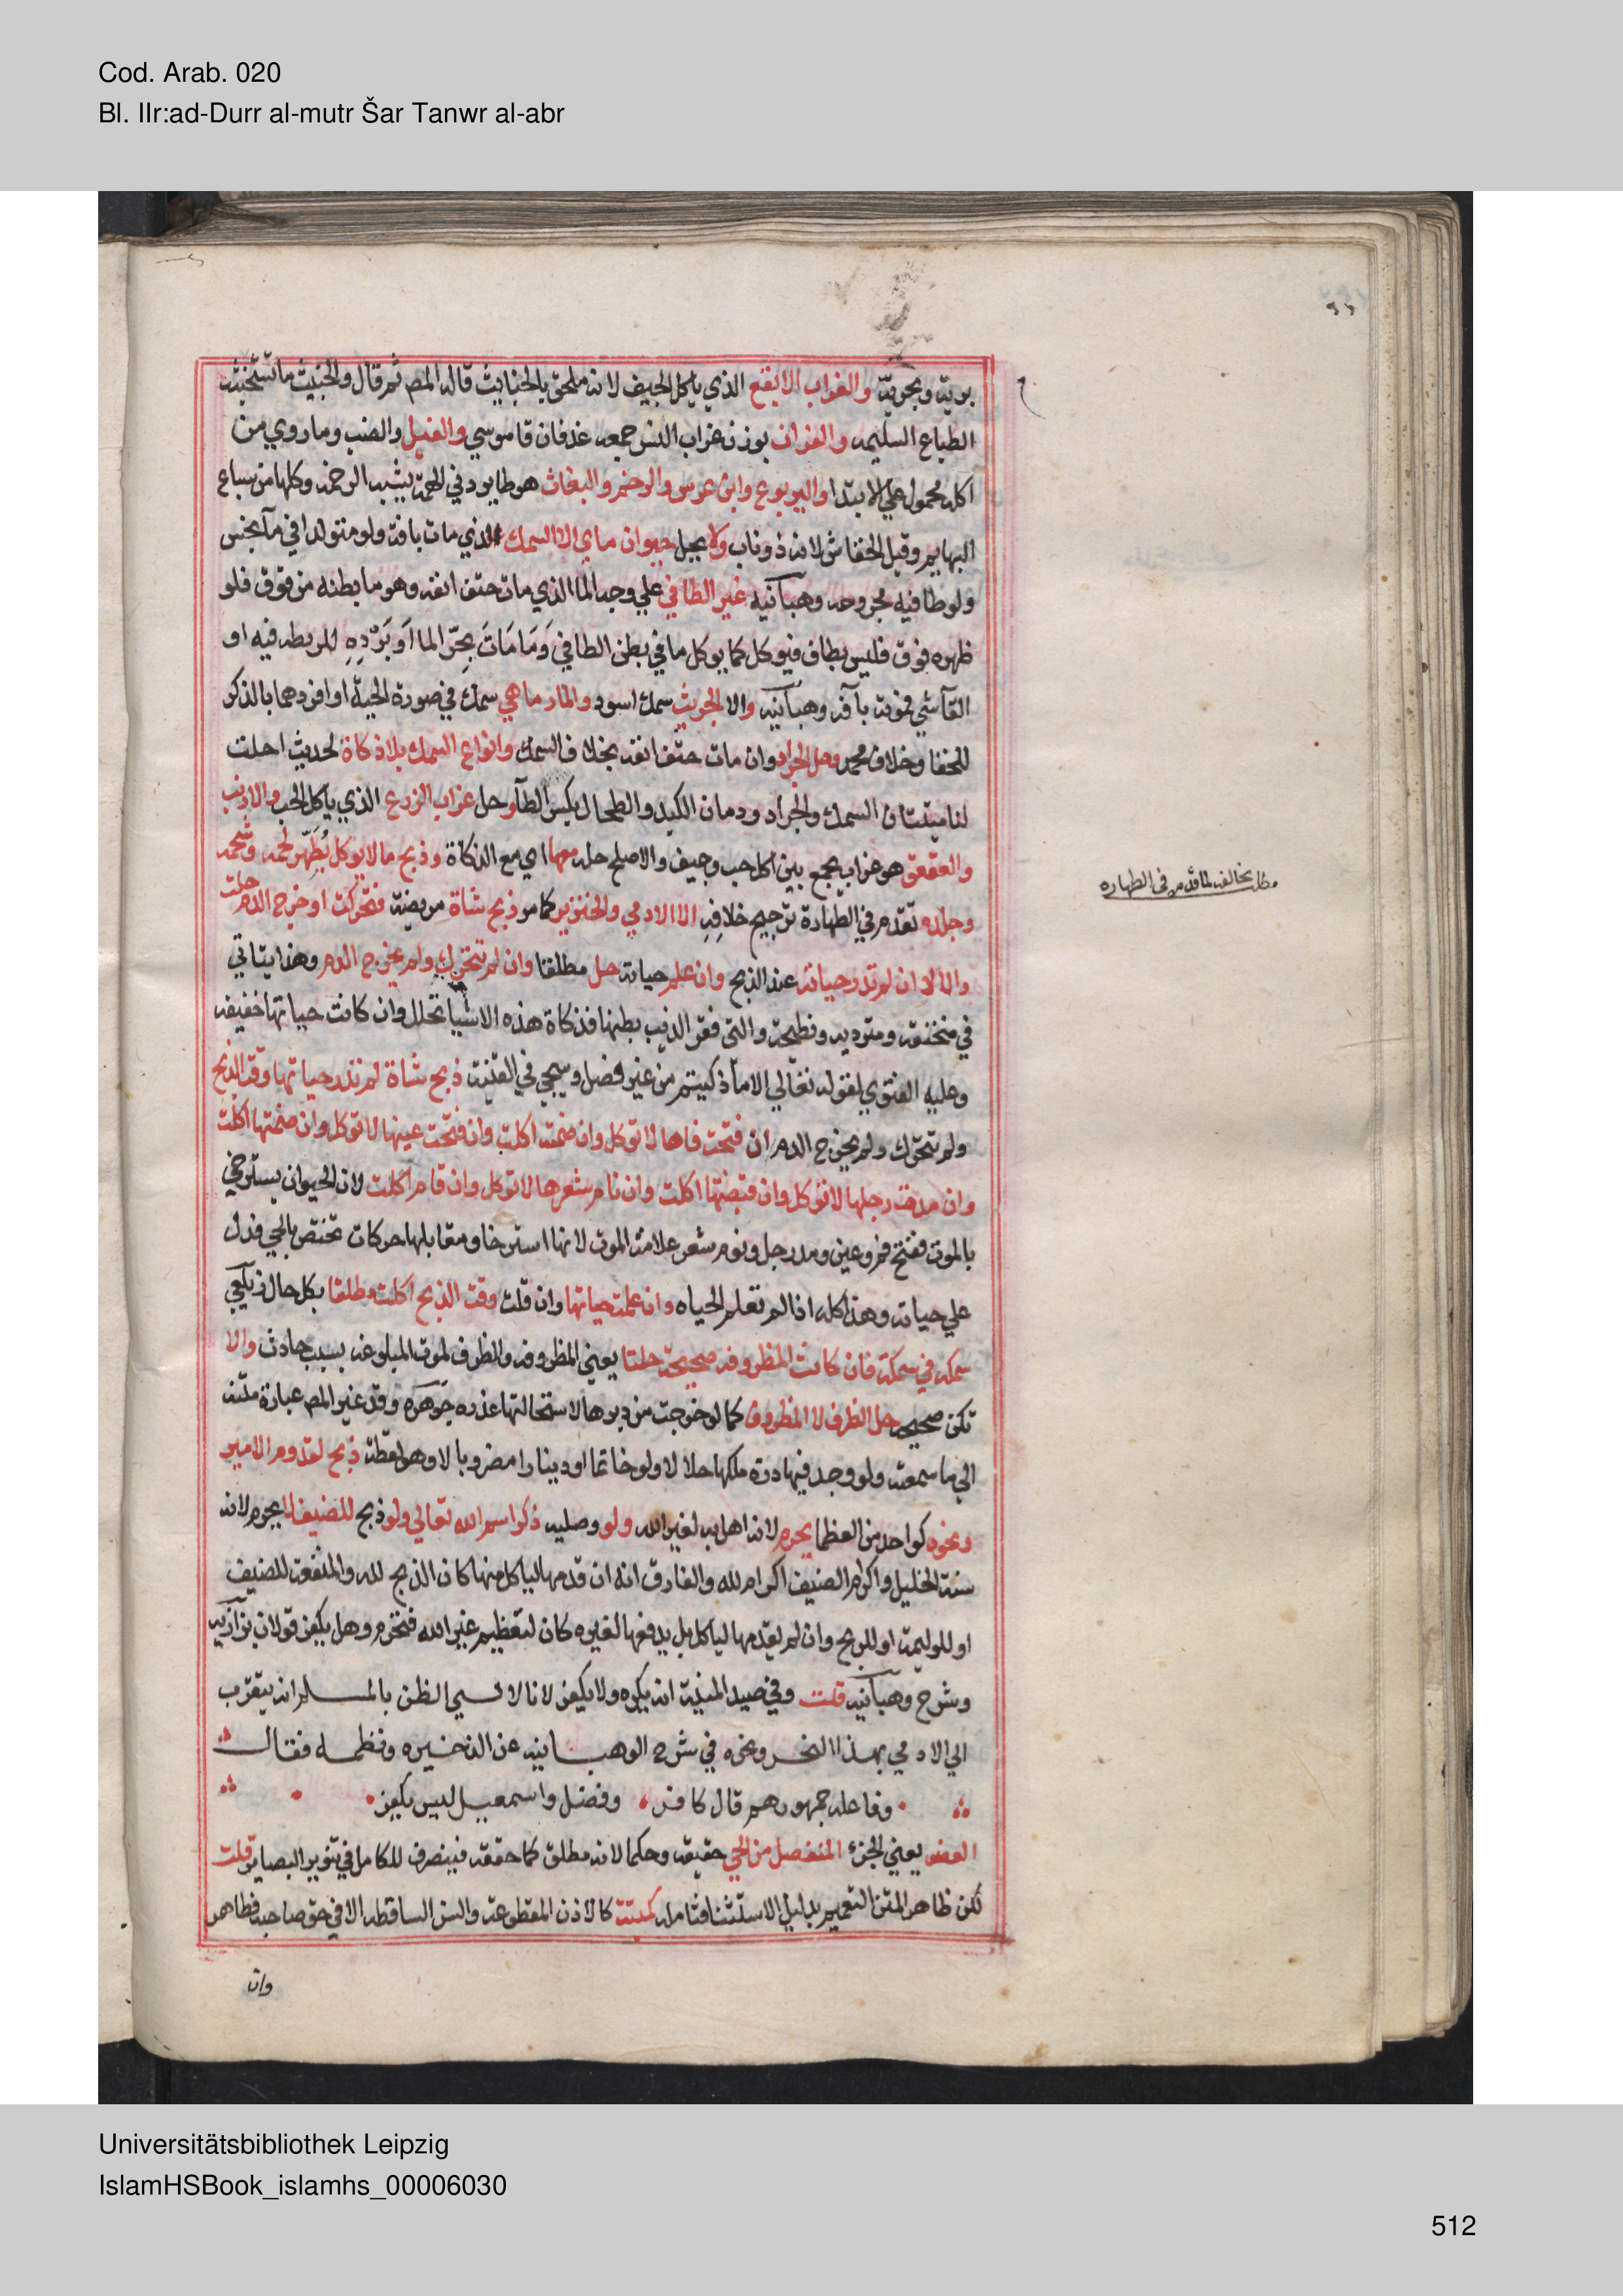 Cod. Arab. 020
Bl. IIr:ad-Durr al-mutr Šar Tanwr al-abr
برية وبحرية والغراب الابقع الذي ياكل الجيف لانه ملحق بالخبايث قاله المص ثم قال والخبيث ما تستخبثه
الطباع السليمه والغداف بوزن غراب النسر جمعه غدفان قاموس والفيل والضب وما روي من
اكله محمول علي الابتدا واليربوع وابن عرس والرخم والبغاث هو طاير دني الهمة يشبه الرخمه وكلها من سباع
البهايم وقيل الخفاش لانه ذو ناب ولا يحل حيوان ماي الا السمك الذي مات بافة ولو متولدا في مآ نجس
ولو طافيه مجروحه وهبآنيه غير الطافي علي وجه الما الذي مات حتف انفه وهو ما بطنه من فوق فلو
ظهره فوق فليس بطاف فيوكل كما يوكل ما في بطن الطافي وَمَا مَاتَ بِحَرّ الما اَو بَرْدِهِ او ربطه فيه او
القآشي فموته بآفه وهبآنيه والا الجريث سمك اسود والمار ماهي سمك في صورة الحية او افردهما بالذكر
للخفا وخلاف محمد وحل الجراد وان مات حتف انفه بخلاف السمك وانواع السمك بلا ذكاة لحديث احلت
لنا ميتتان السمك والجراد ودمان الكبد والطحال بكسر الطآ وحل غراب الزرع الذي ياكل الحب والارنب
والعقعق هو غراب يجمع بين اكل حب وجيف والاصح حله معها اي مع الذكاة وذبح ما لا يوكل يُطَهّر لحمه وشحمه
وجلده تقدم في الطهارة ترجيح خلافه الا الادمي والخنزير كما مر ذبح شاة مريضة فتحركت او خرج الدم حلت
والا لا ان لم تدر حياته عند الذبح وان علم حياته حل مطلقا وان لم تتحرك ولم يخرج الدم وهذا يتاتي
في منخنقه ومترديه ونطيحة والتي فقر الذيب بطنها فذكاة هذه الاشيا تحلل وان كانت حياتها خفيفه
وعليه الفتوي لقوله تعالي الا ما ذكيتم من غير فصل وسيجي في القنية ذبح شاة لم تدر حياتها وقت الذبح
ولم تتحرك ولم يخرج الدم ان فتحت فاها لا توكل وان ضمته اكلت وان فتحت عينها لا توكل وان ضمتها اكلت
وان مدت رجلها لا توكل وان قبضتها اكلت وان نام شعرها لا توكل وان قام اكلت لان الحيوان يسترخي
بالموت ففتح فم وعين ومد رجل ونوم شعر علامة الموت لانها استرخا ومقابلها حركات تختص بالحي فدل
علي حياته وهذا كله اذا لم تعلم الحياه وان علمت حياتها وان قلت وقت الذبح اكلت مطلقا بكل حال زيلعي
سمكه في سمكة فان كانت المظروفه صحيحة حلتا يعني المظروفه والظرف لموت المبلوعه بسبب حادث والا
تكن صحيحه حل الظرف لا المظروف كما لو خرجت من دبرها لاستحالتها عذره جَوهَرَه وقد غير المص عبارة متنه
الي ما سمعته ولو وجد فيها درة ملكها حلالا ولو خاتما او دينارا مضروبا لا وهو لقطة ذبح لقدوم الامير
ونحوه كواحد من العظما يحرم لانه اهل به لغير الله ولو وصليه ذكر اسم الله تعالي ولو ذبح للضيف لا يحرم لانه
سنة الخليل واكرام الضيف اكرام لله والفارق انه ان قدمها لياكل منها كان الذبح لله والمنفعة للضيف
او للوليمة او للربح وان لم يقدمها لياكل بل يدفعها لغيره كان لتعظيم غير الله فتحرم وهل يكفر قولان بزآزيه
وشرح وهبآنيه قلت وفي صيد المنية انه يكره ولا يكفر لانا لا نسي الظن بالمسلم انه يتقرب
الي الادمي بهذا النحر ونحوه في شرح الوهبانيه عن الذخيره ونظمه فقال
وفاعله جمهورهم قال كافر وفضل واسمعيل ليس يكفر
العضو يعني الجزء المنفصل من الحي حقيقه وحكما لانه مطلق كما حققه فينصرف للكامل في تنوير البصاير قلت
لكن ظاهر المتن التعميم بدليل الاستثنا فتامل كميتته كالاذن المقطوعه والسن الساقطه الا في حق صاحبه فطاهر
وان
مطلب يخالف لما قدم في الطهاره
Universitätsbibliothek Leipzig
IslamHSBook_islamhs_00006030
512